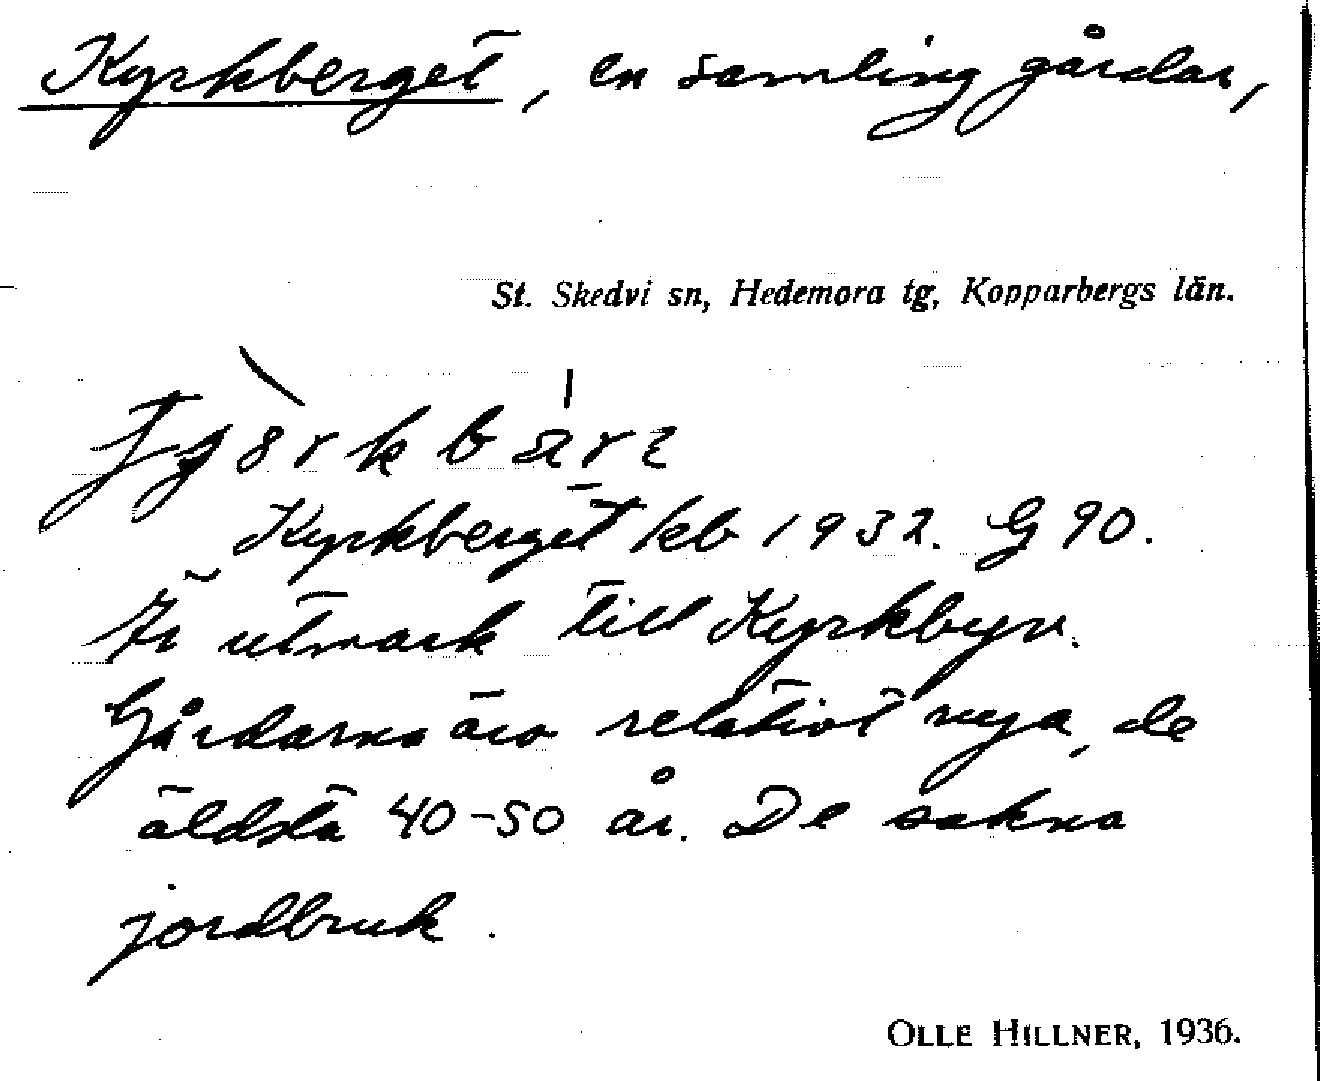 Kyrkberget, en samling gårdar,
St. Skedvi sn, Hedemora tg, Kopparbergs län.
Kyrkberget kb 1932. G 90.
Är utmark till Kyrkbyn.
Gårdarna äro relativt nya, de
äldsta 40-50 år. De sakna
jordbruk.
OLLE HILLNER, 1936.